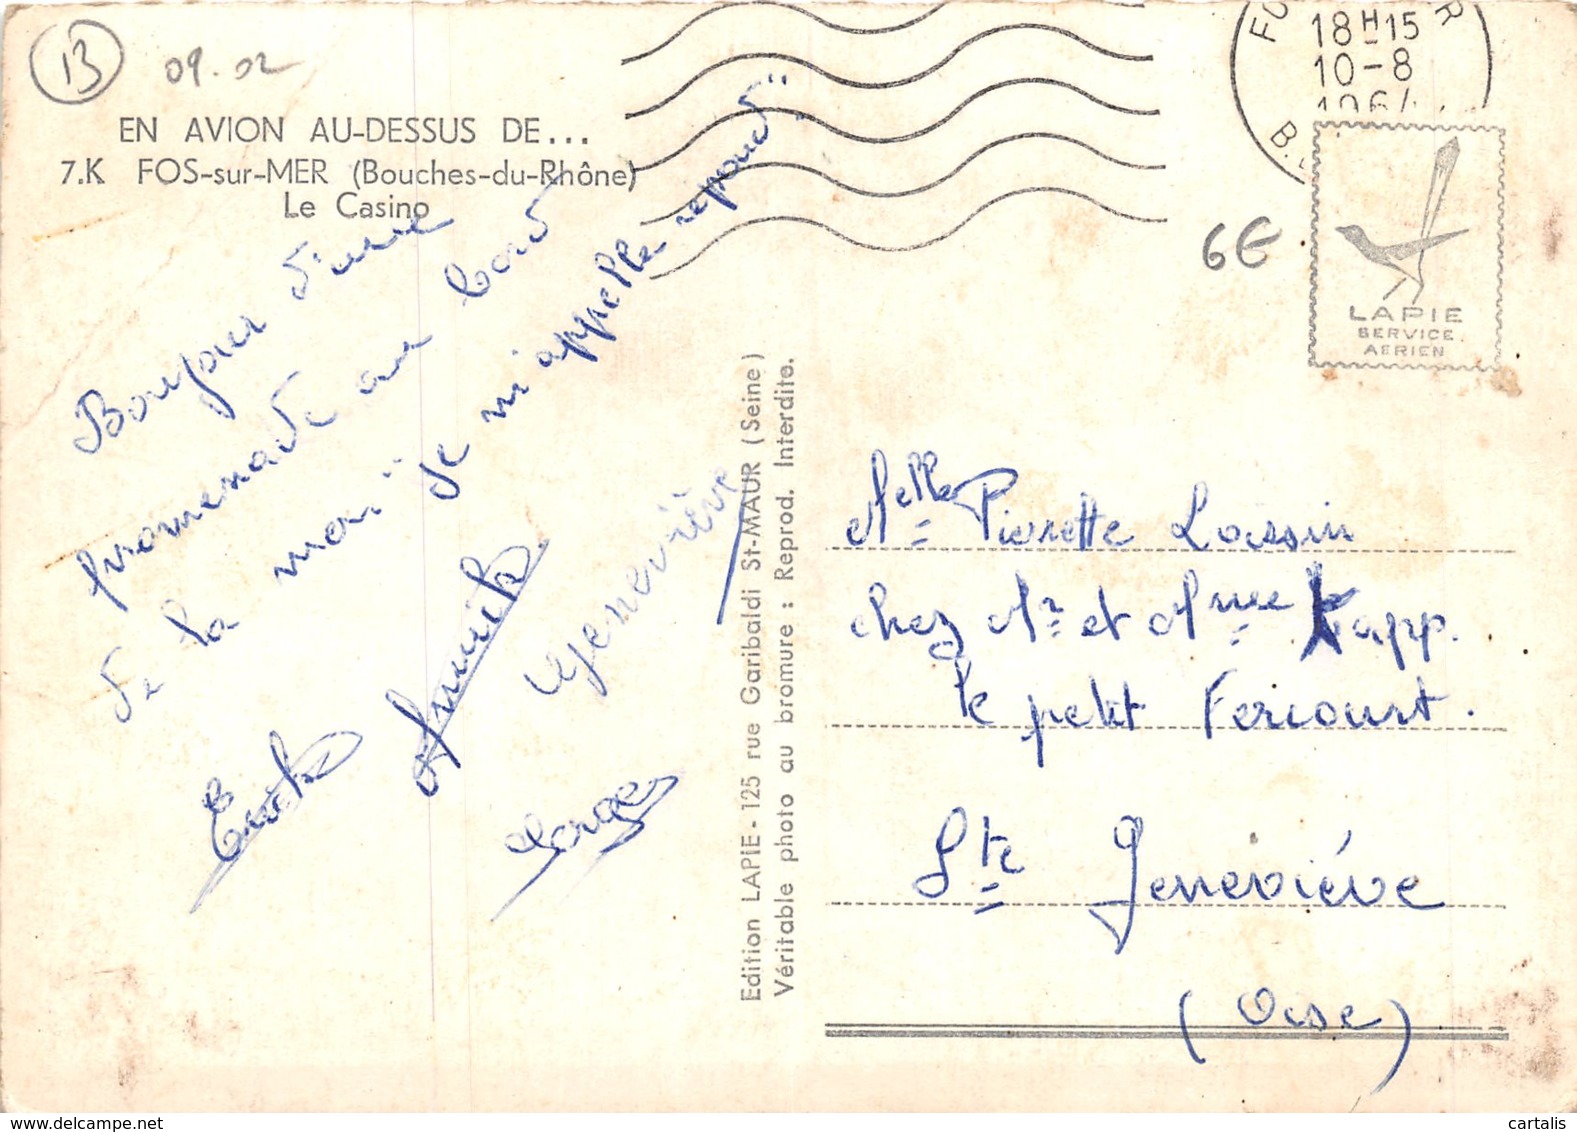 13
09.02
EN AVION AU-DESSUS DE...
7.K FOS-sur-MER (Bouches-du-Rhône)
Le Casino
18H15
10-8
1964
6€
LAPIE
SERVICE
AERIEN
Bonjour d'une
promenade au bord
de la mer. "je m'appelle repond"
Geneviève
Serge
Edition LAPIE - 125 rue Garibaldi St-MAUR (Seine)
Véritable photo au bromure : Reprod. Interdite.
Melle Pierrette Lassin
chez Mr et Mme Kapp.
le petit Fercourt.
Ste Geneviéve
(Oise)
cartalis
www.delcampe.net